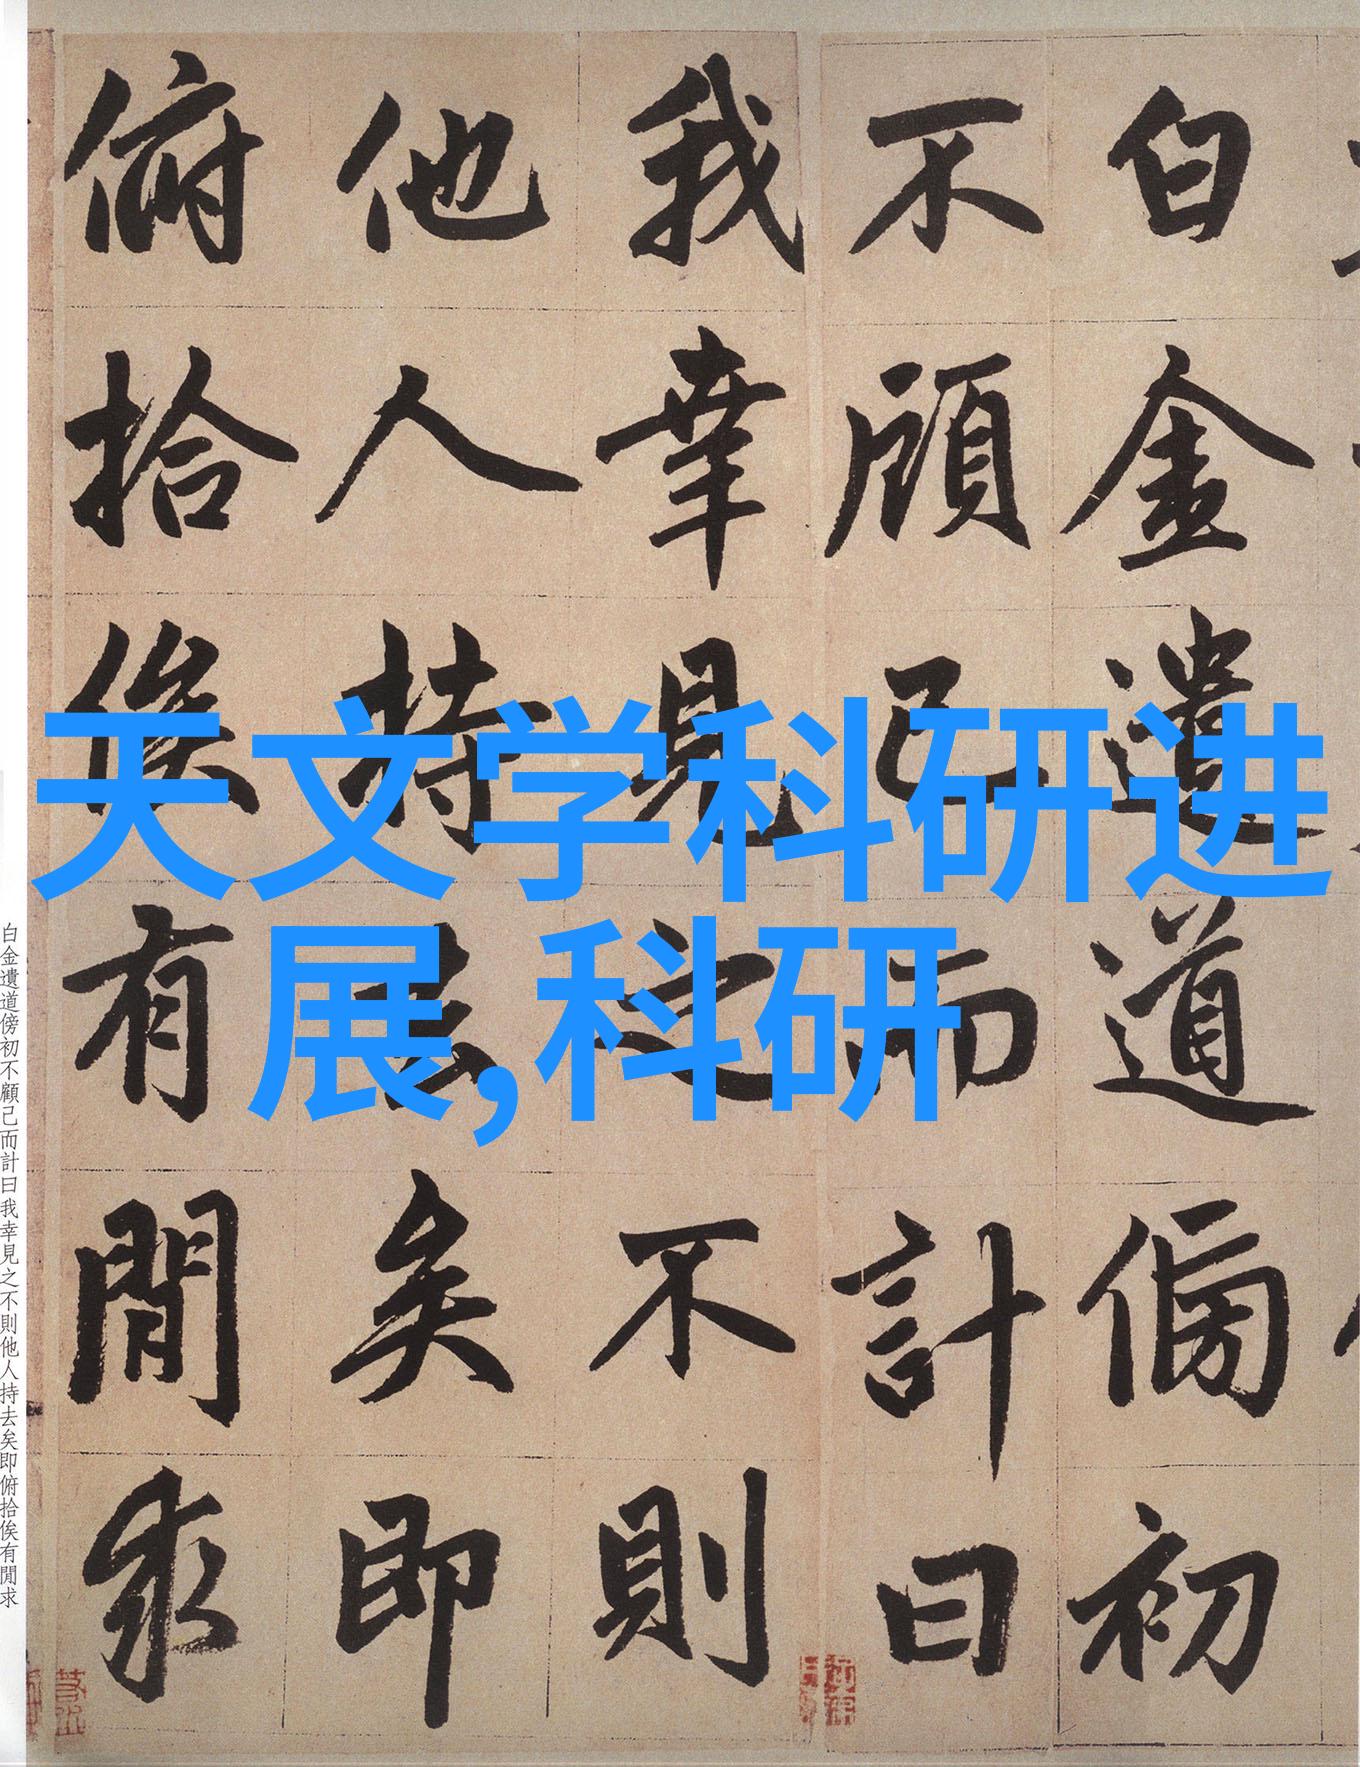 天文学科研进
展,科研
白金遺道傍初
不顧己而計曰
我幸見之不則
他人持去矣即
俯拾俟有閒求
白金遺道傍初不顧己而計曰我幸見之不則他人持去矣即俯拾俟有閒求